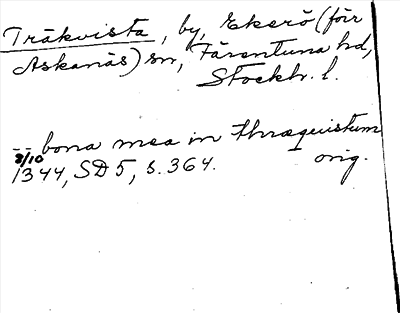 Träkvista, by, Ekerö (förr
Askanäs) sn, Färentuna hd,
Stockh. l.
-- bona mea in thræquistum
8/10 1344, SD 5, s. 364. orig.